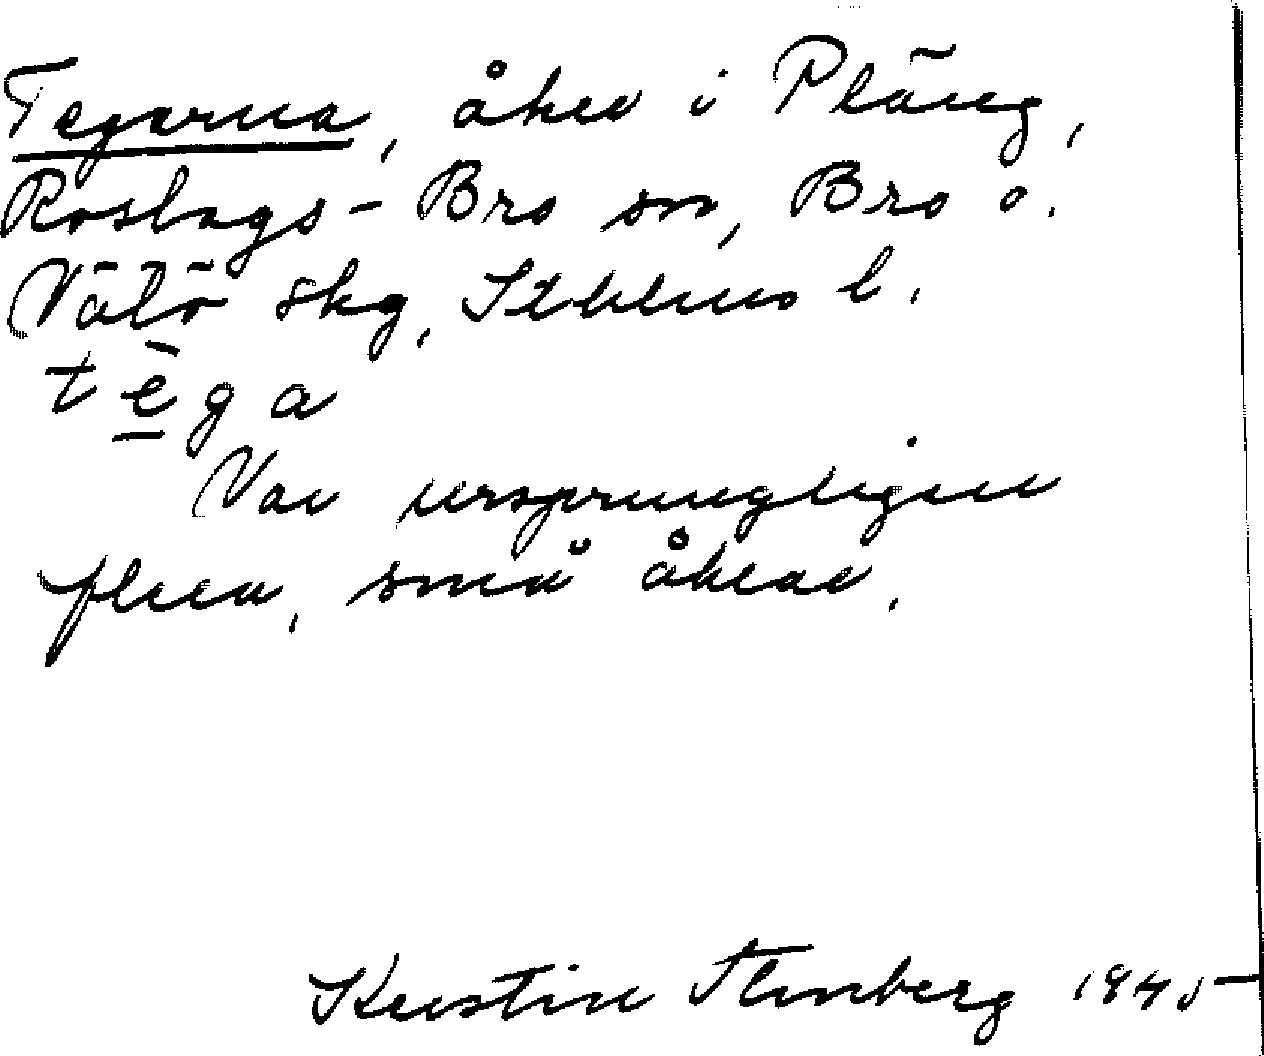 Tegarna, åker i Pläng,
Roslags-Bro sn, Bro o.
Vätö skg, Sthlms l.
tèga
Var ursprungligen
flera, små åkrar.
Kerstin Stenberg 1945